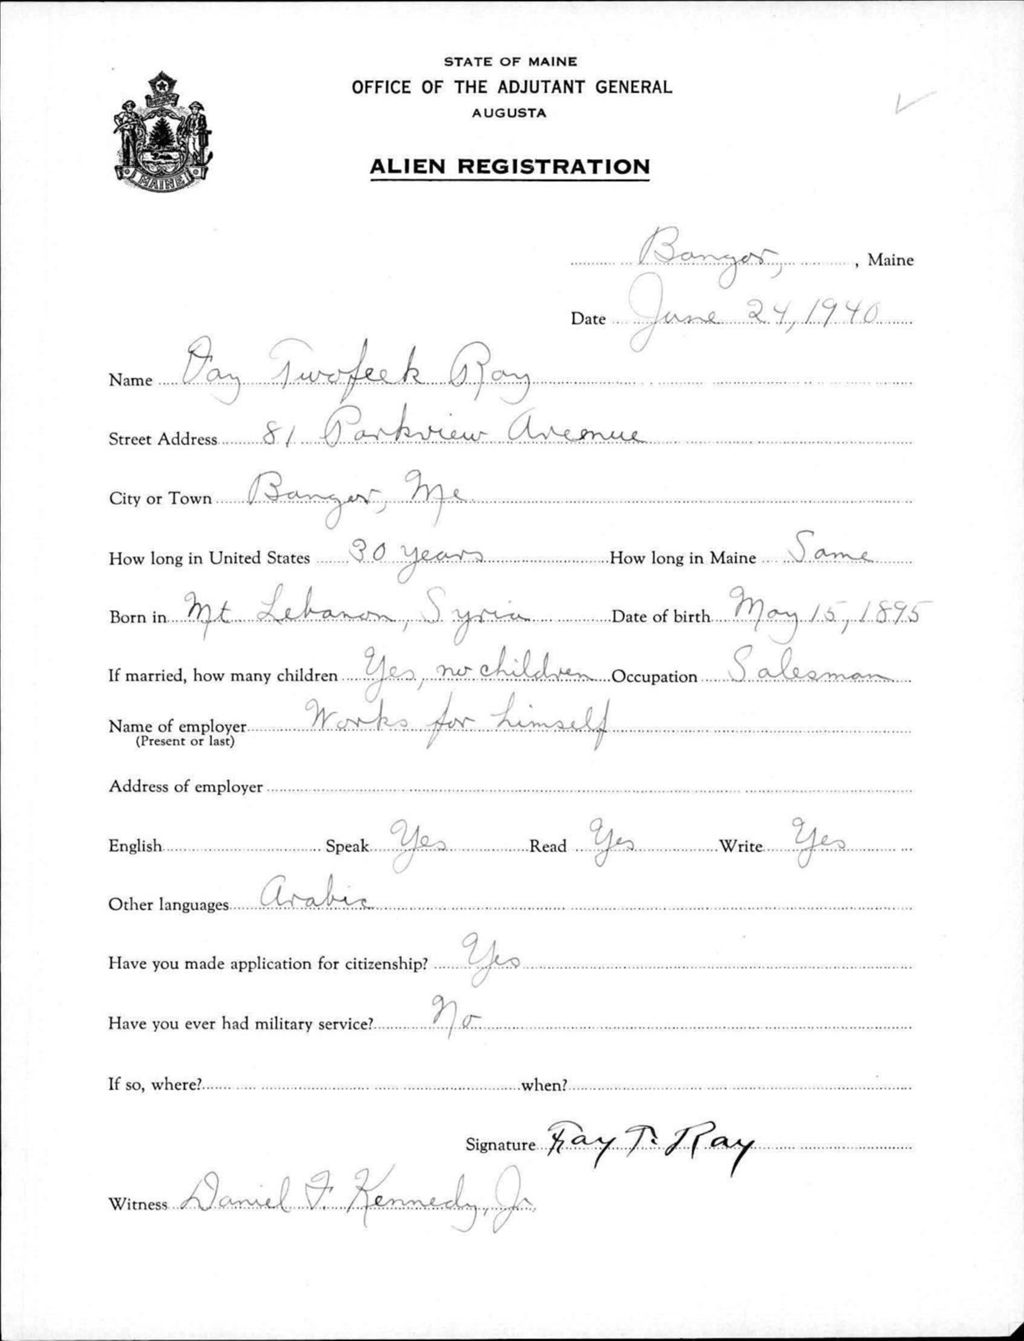 STATE OF MAINE
OFFICE OF THE ADJUTANT GENERAL
AUGUSTA
ALIEN REGISTRATION
MAINE
Bangor, , Maine
Date June 24, 1940
Name Fay Twofeek Ray
Street Address 81 Parkview Avenue
City or Town Bangor, Me
How long in United States 30 years How long in Maine Same
Born in Mt Lebanon, Syria Date of birth May 15, 1895
If married, how many children Yes, no children Occupation Salesman
Name of employer Works for himself
(Present or last)
Address of employer
English Speak Yes Read Yes Write Yes
Other languages Arabic
Have you made application for citizenship? Yes
Have you ever had military service? No
If so, where? when?
Signature Fay T. Ray
Witness Daniel F. Kennedy, Jr.